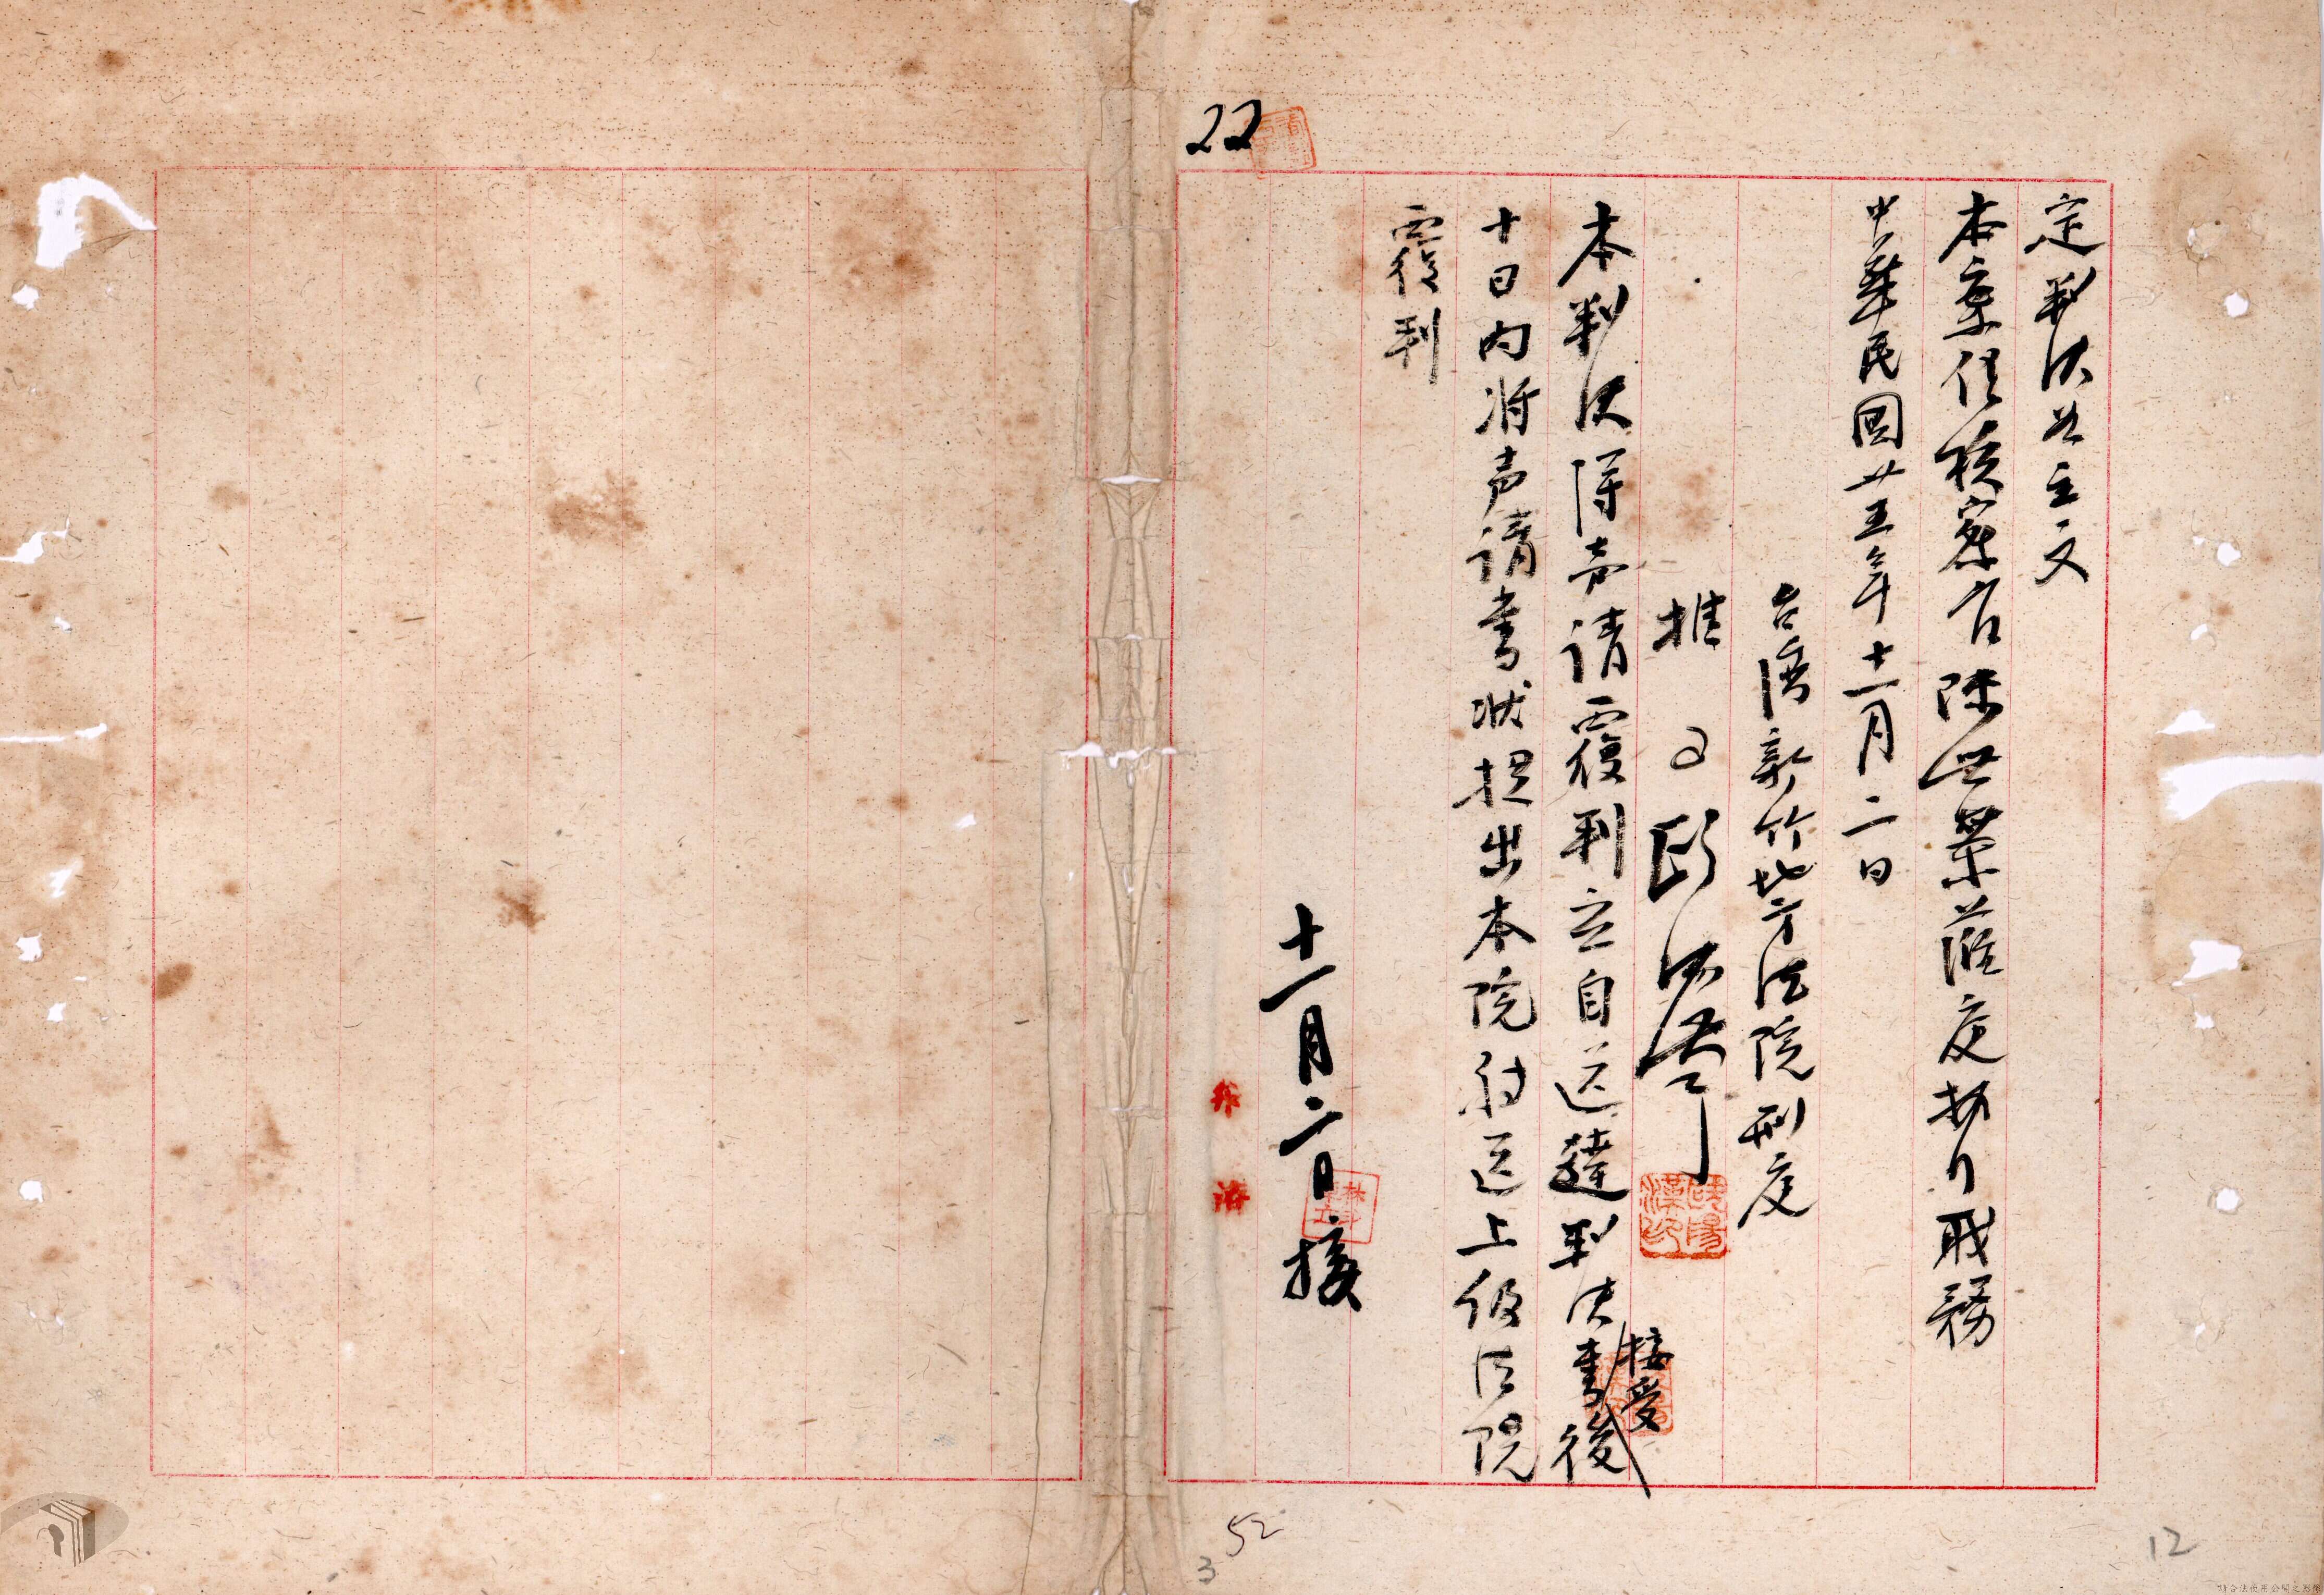 22
定判決如主文
本案經檢察官陳世榮蒞庭執行職務
中華民國卅五年十一月二日
台灣新竹地方法院刑庭
推事歐陽漢
歐陽漢印
本判決得声請覆判应自送達判決書後
接受
十日內将声請書狀提出本院轉送上级法院
覆判
十一月二日接
52
3
12
請合法使用公開之影像